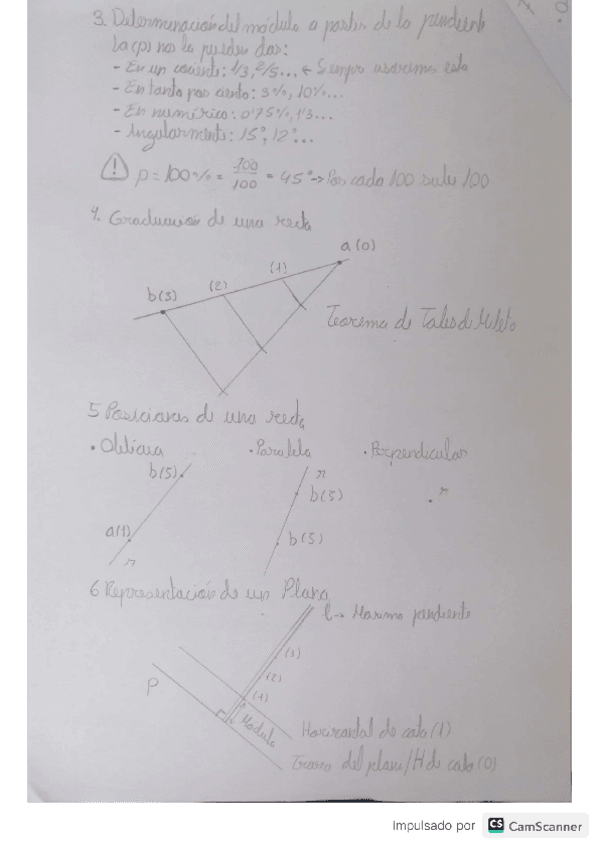 3. Determinación del módulo a partir de la pendiente
La (p) nos la pueden dar:
- En un cociente: 1/3, 2/5... ← Siempre usaremos esta
- En tanto por ciento: 3%, 10%...
- En numérico: 0'75%, 1'3...
- Angularmente: 15°, 12°...
! p = 100% = 100/100 = 45° → Por cada 100 sube 100
4. Graduación de una recta
a (0)
(1)
(2)
b(3)
Teorema de Tales de Mileto
5 Posiciones de una recta
• Oblicua • Paralela • Perpendicular
b(5) r r
b(5)
a(1) b(5)
r
6 Representación de un Plano
l → Maxima pendiente
(3)
(2)
P (1)
Módulo
Horizontal de cota (1)
Traza del plano/H de cota (0)
Impulsado por CS CamScanner